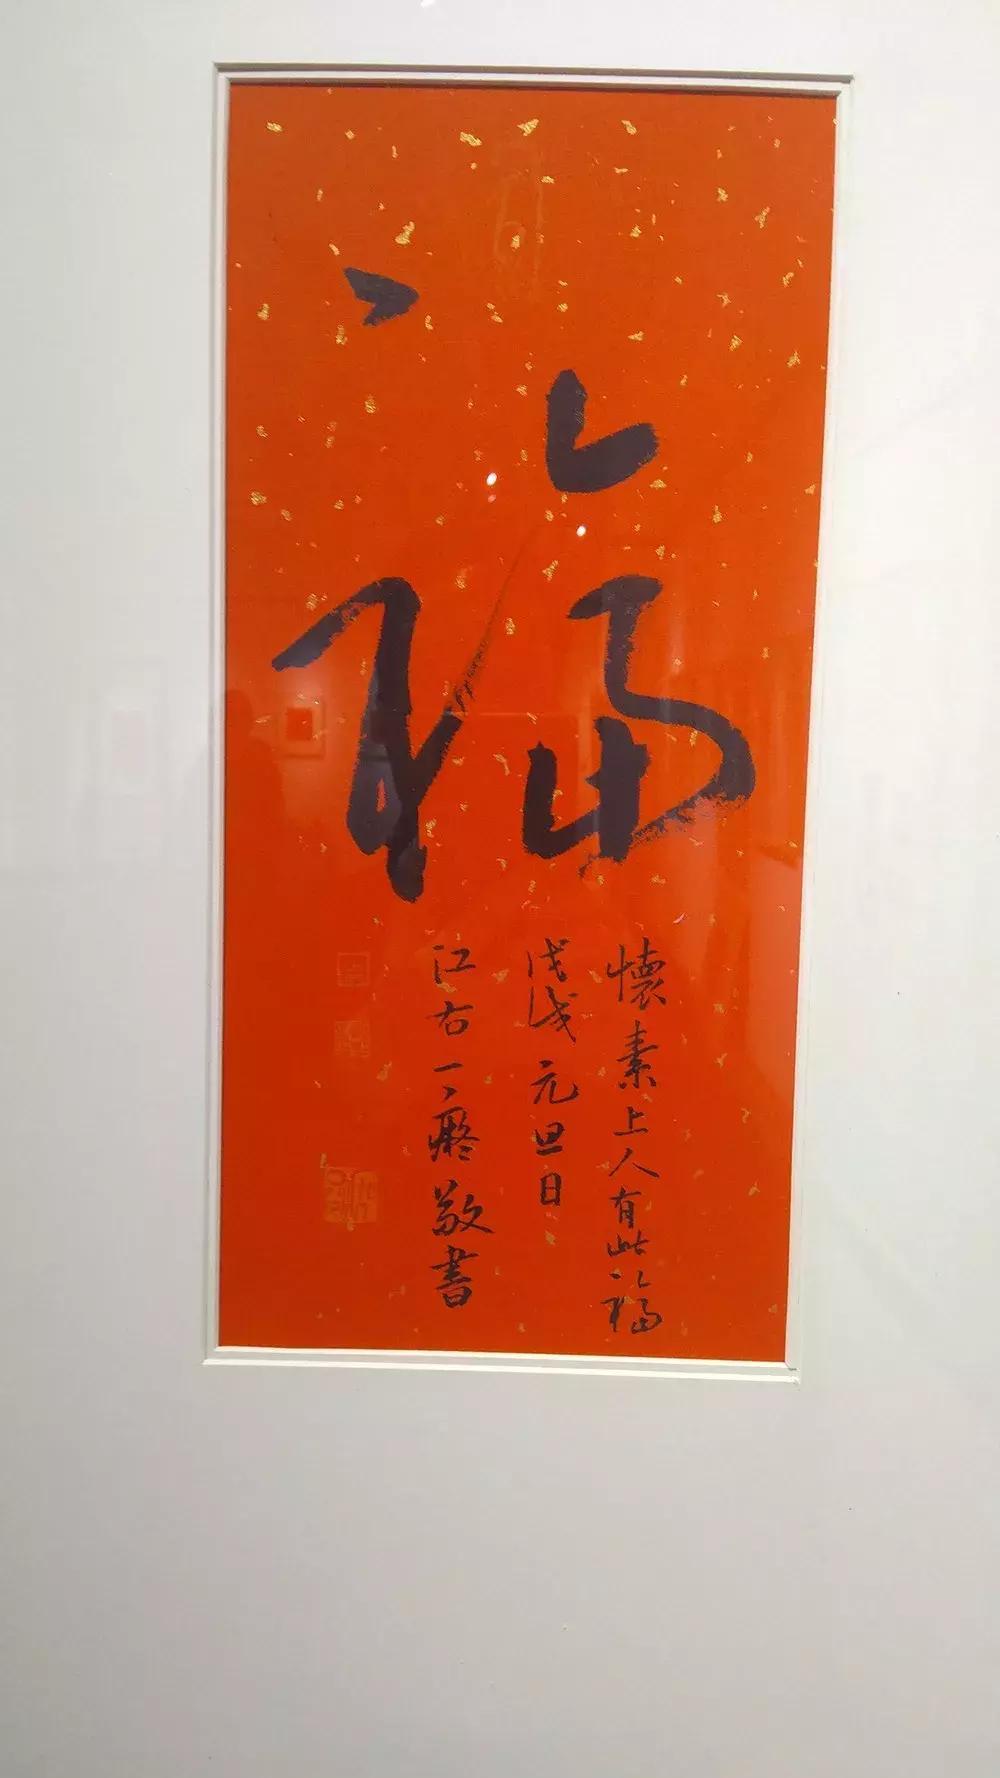 福
懷素上人有此福
戊戌元旦日
江右一癡敬書